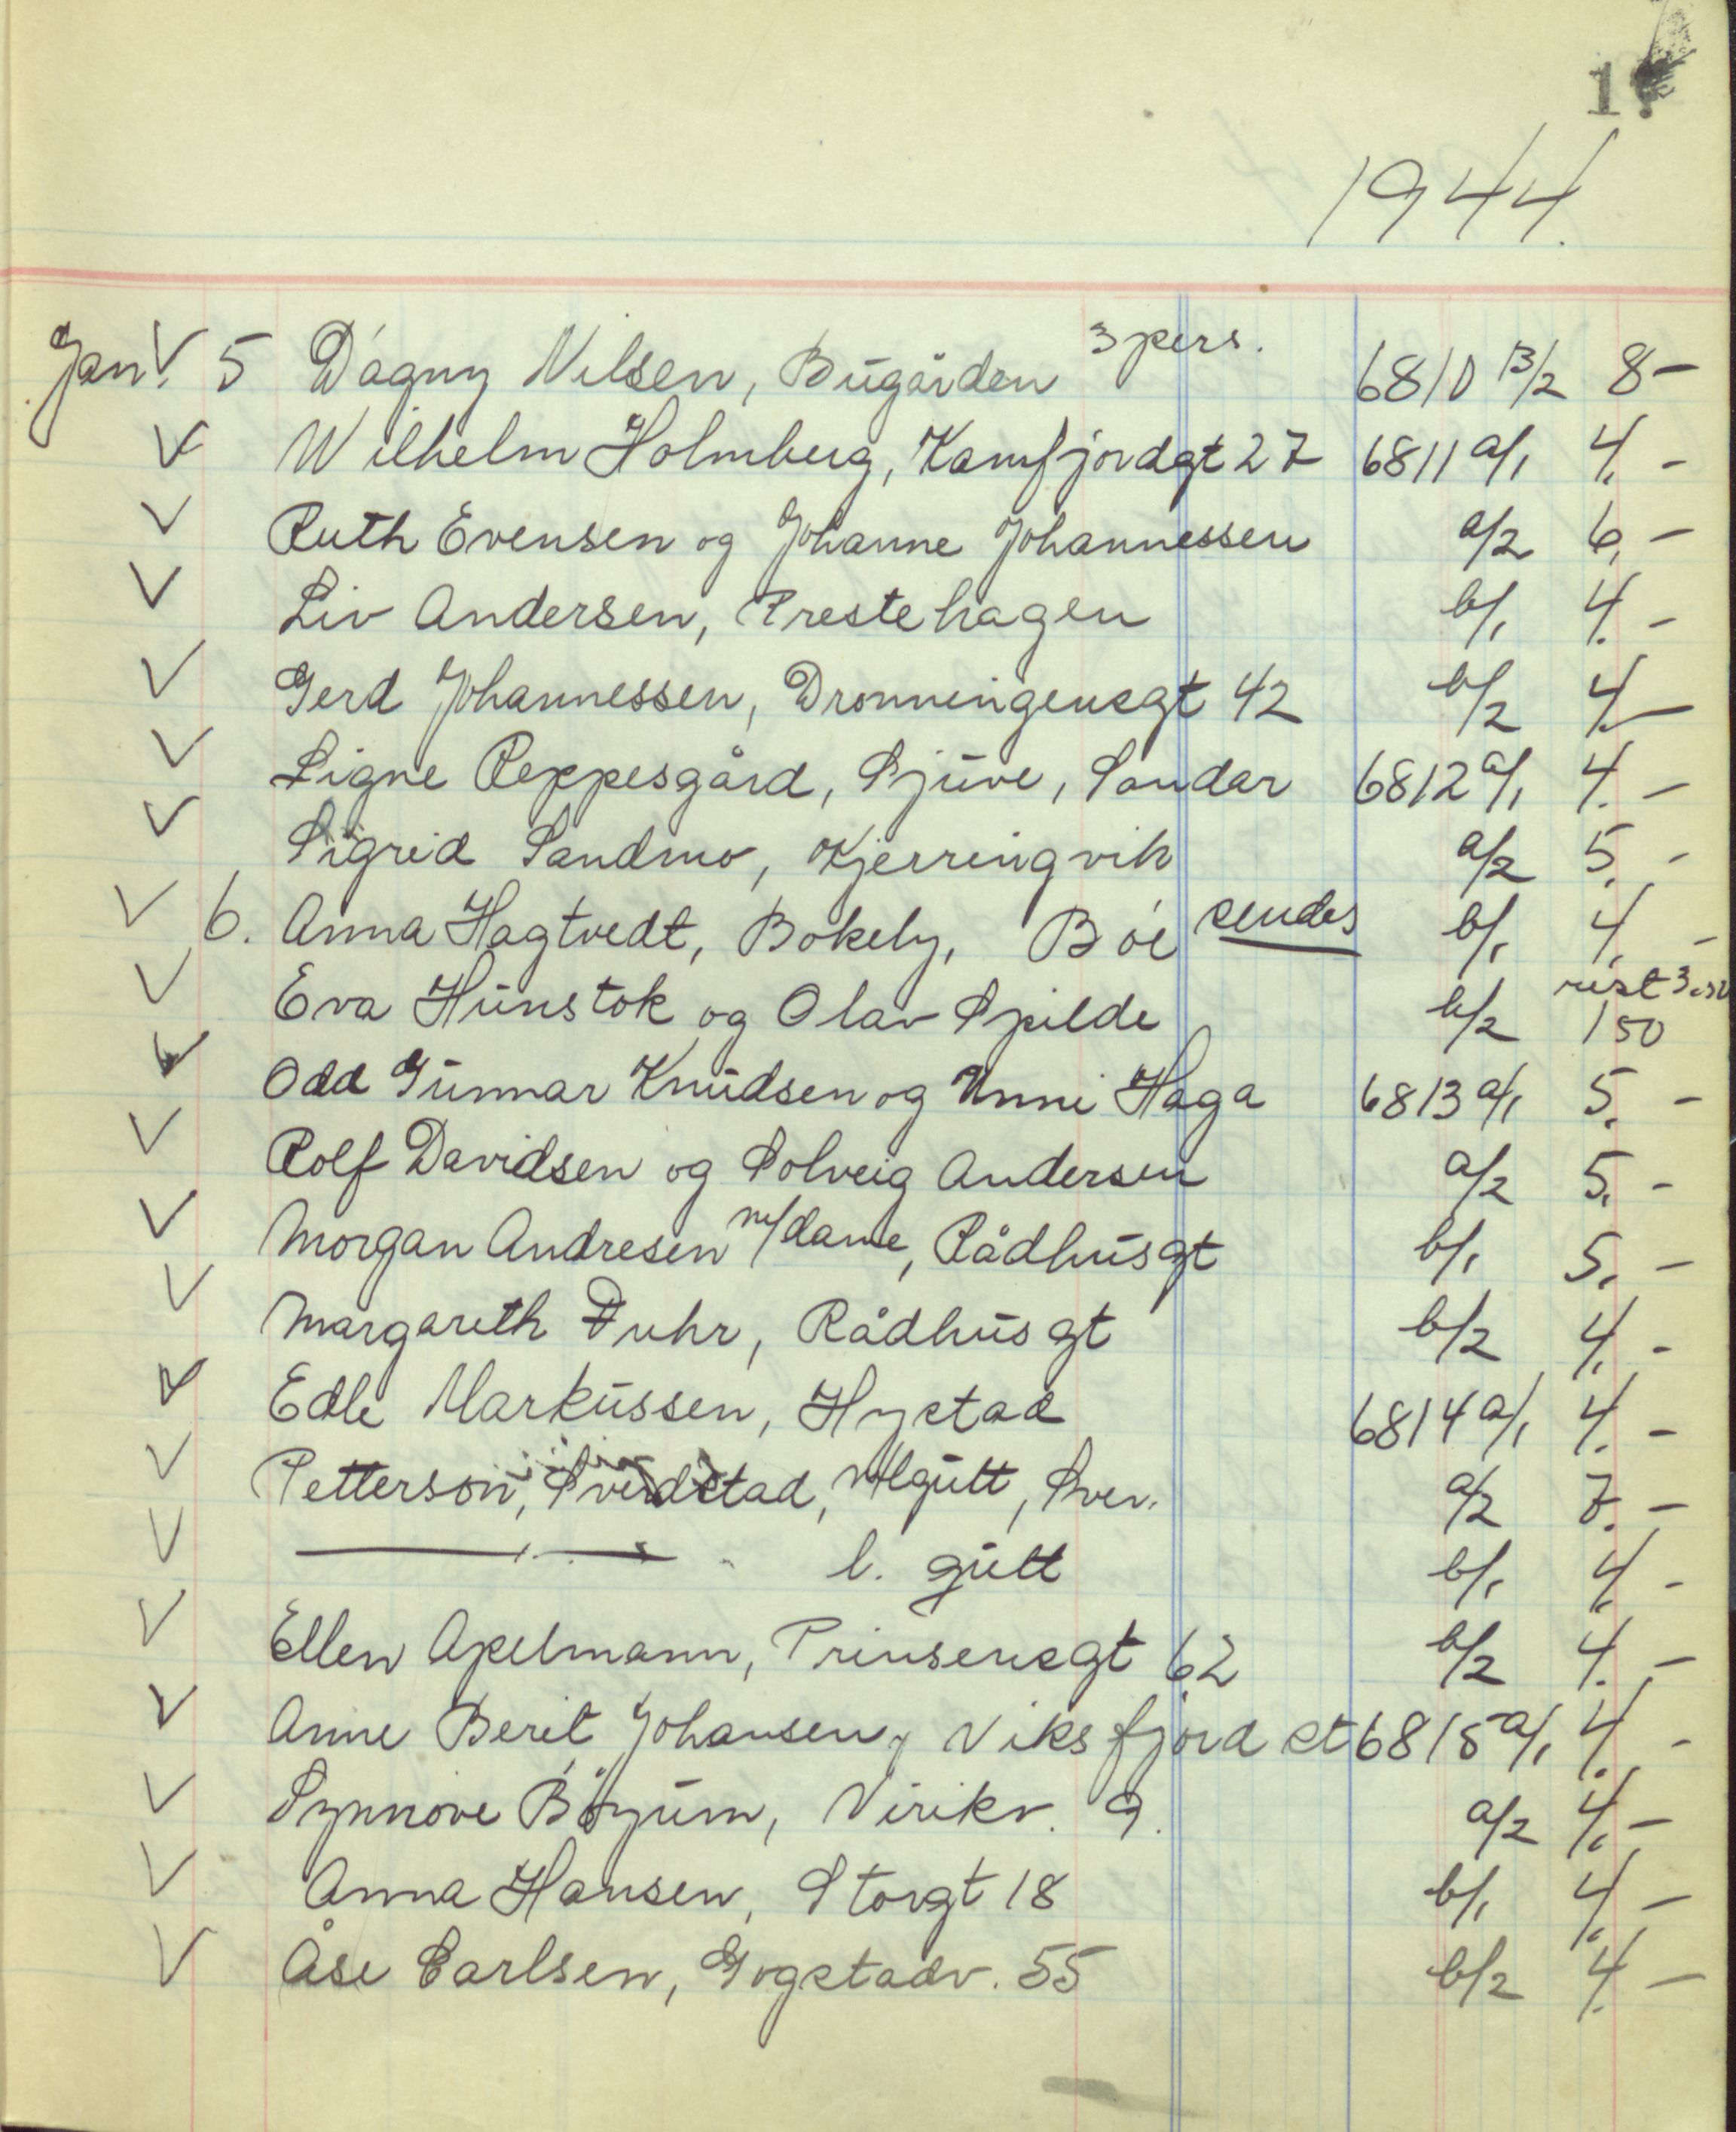 1
1944.
Jan. V 5 Dagny Nilsen, Bugården 3 pers. 6810 B/2 8 -
V Wilhelm Holmberg, Kamfjordgt 27 6811 a/1 4. -
V Ruth Evensen og Johanne Johannessen a/2 6. -
V Liv Andersen, Prestehagen b/1 4. -
V Gerd Johannessen, Dronningensgt 42 b/2 4. -
V Signe Reppesgård, Sjuve, Sandar 6812 a/1 4. -
V Sigrid Sandmo, Kjerringvik a/2 5. -
V 6. Anna Hagtvedt, Bokely, Bøe sendes b/1 4. -
V Eva Hunstok og Olav Spilde b/2 rest 3.50 1 50
V Odd Gunnar Knudsen og Unni Haga 6813 a/1 5. -
V Rolf Davidsen og Solveig Andersen a/2 5. -
V Morgan Andresen m/dame, Rådhusgt b/1 5. -
V Margareth Duhr, Rådhusgt b/2 4. -
V Edle Markussen, Hystad 6814 a/1 4. -
V Petterson, tad, gutt, a/2 7. -
V — " — l. gutt b/1 4. -
V Ellen Apelmann, Prinsensgt 62 b/2 4. -
V Anne Berit Johansen, Viksfjord st 6815 a/1 4. -
V Synnøve Bøyum, Virikv. 9. a/2 4. -
V Anna Hansen, Storgt 18 b/1 4. -
V Åse Carlsen, Gogstadv. 55 b/2 4. -